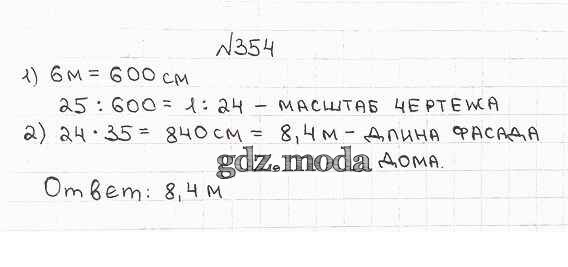 №354
1) 6м = 600 см
25 : 600 = 1 : 24 – масштаб чертежа
2) 24 · 35 = 840 см = 8,4 м – длина фасада
gdz.moda дома.
Ответ: 8,4 м